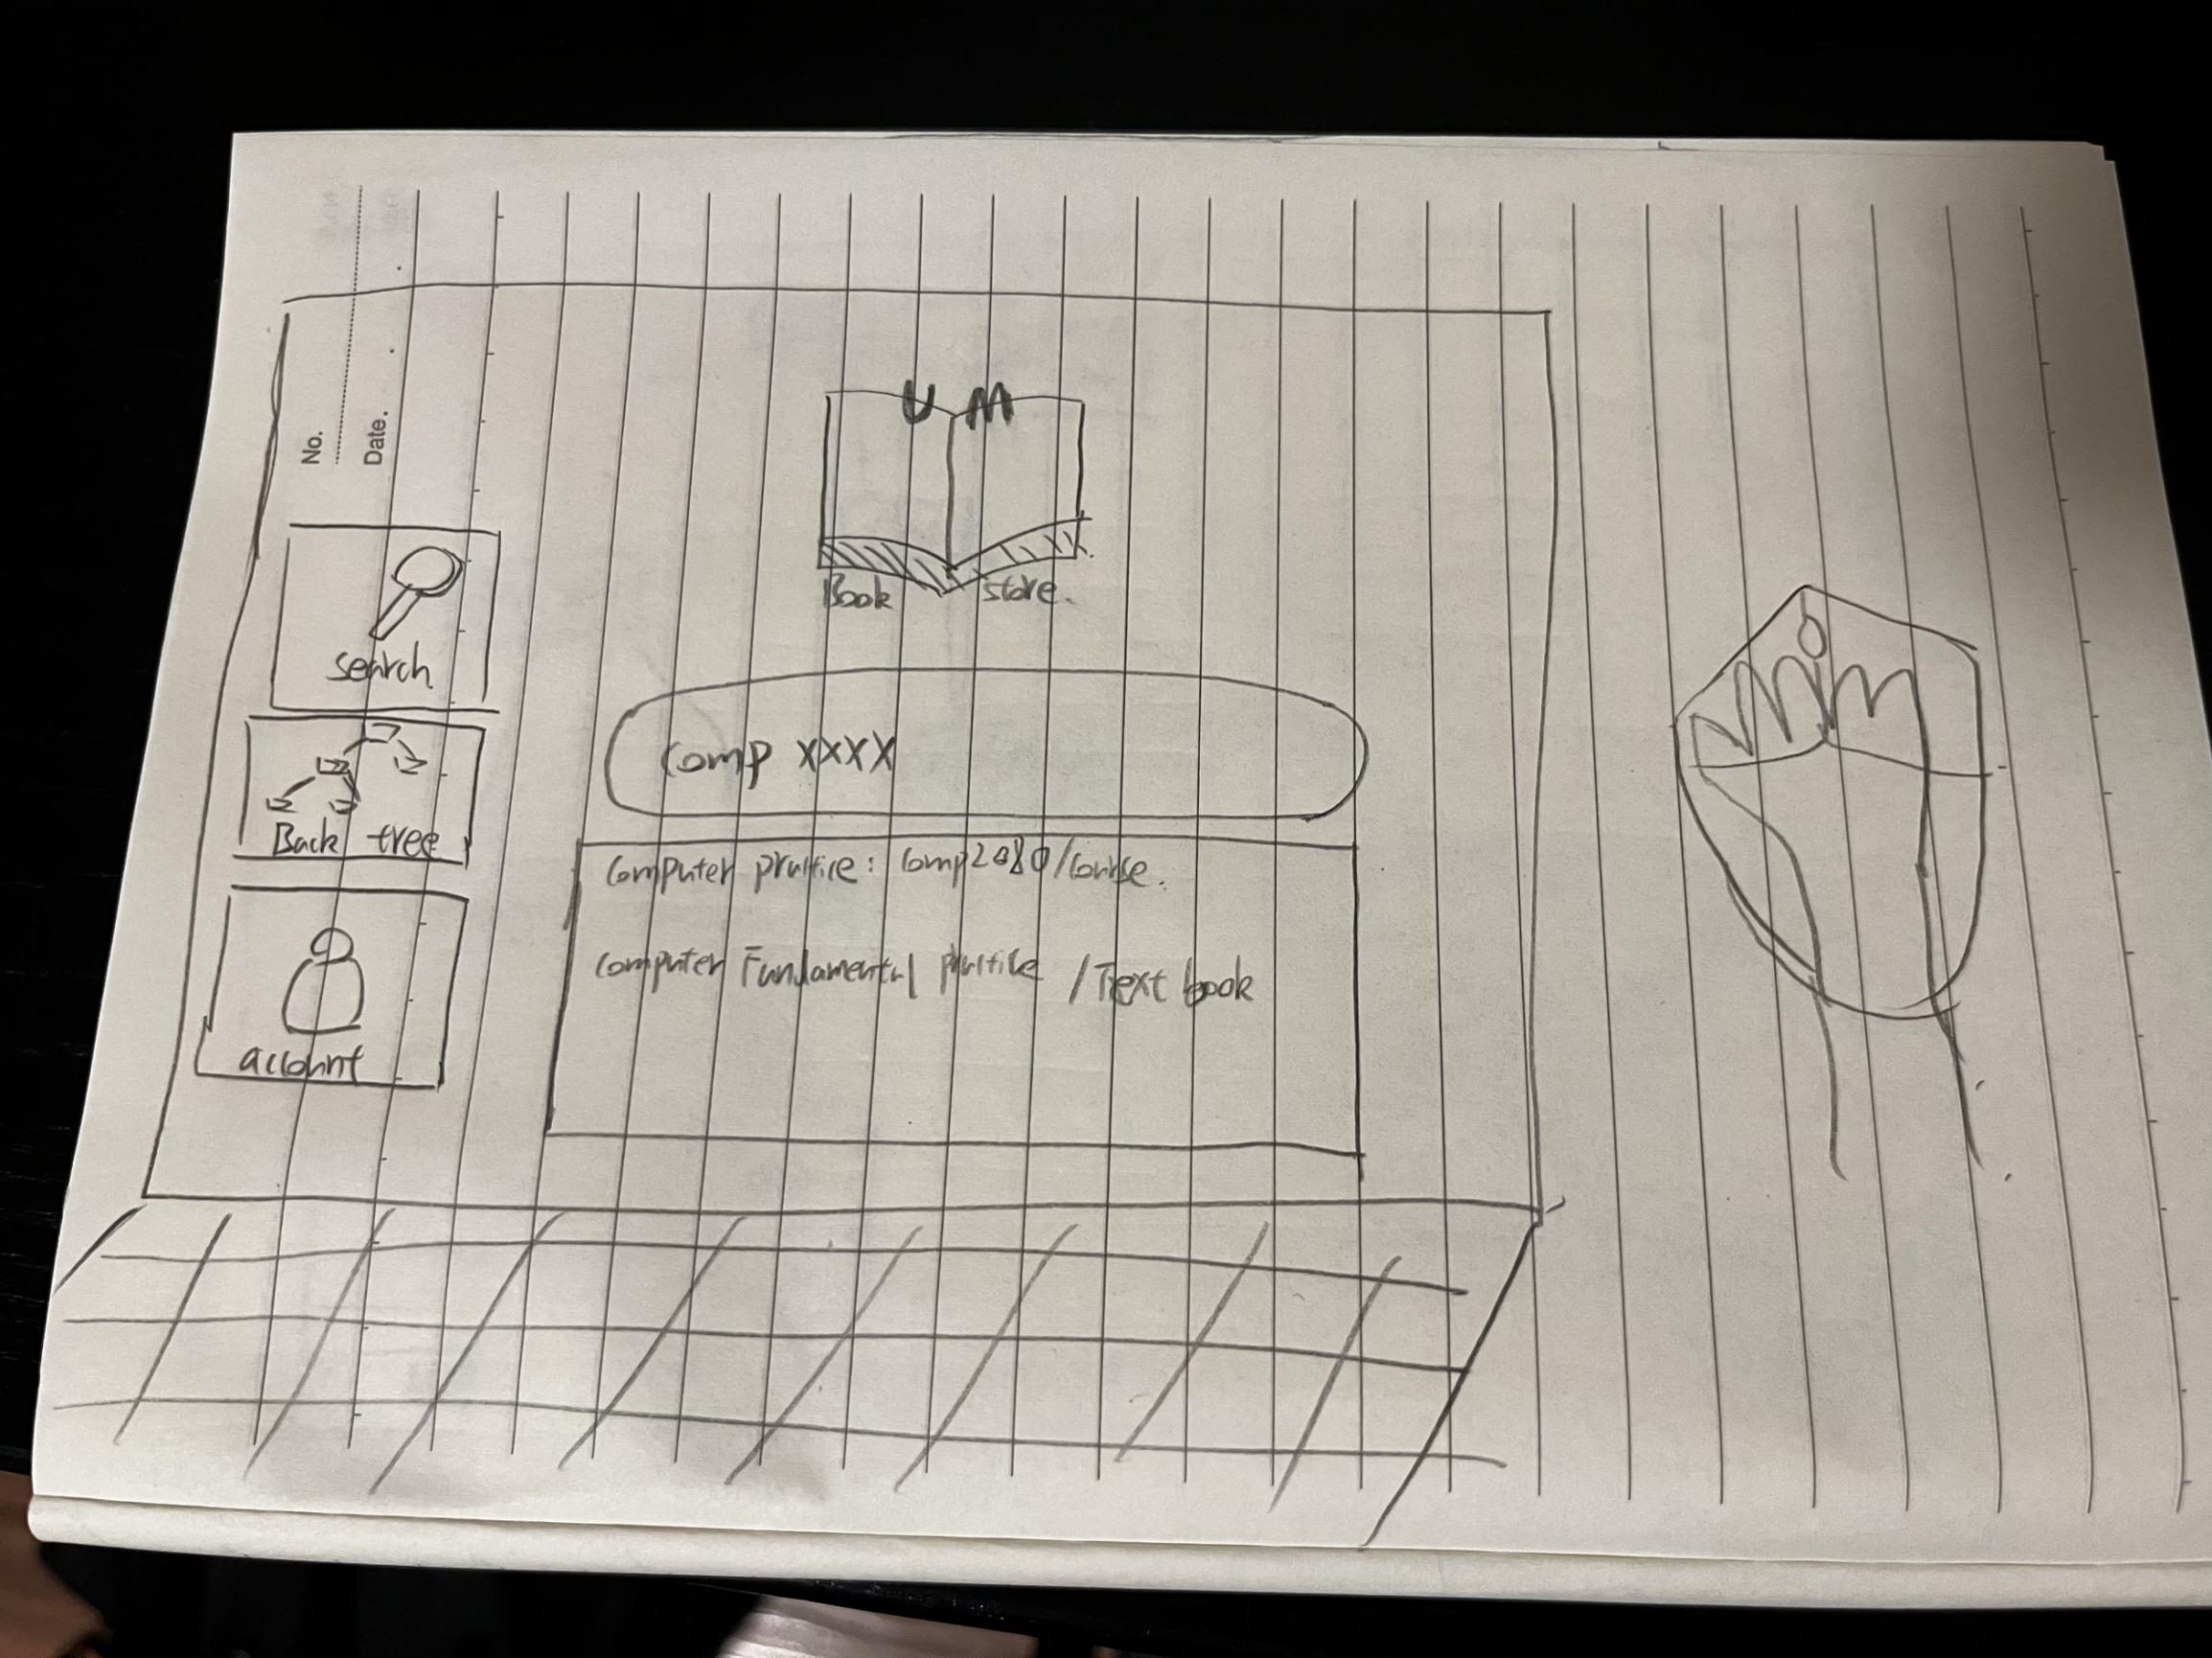 No.
Date.
U M
Book store.
search
Back tree
account
Comp XXXX
Computer practice: Comp2080/Course.
Computer Fundamental practice /Text book